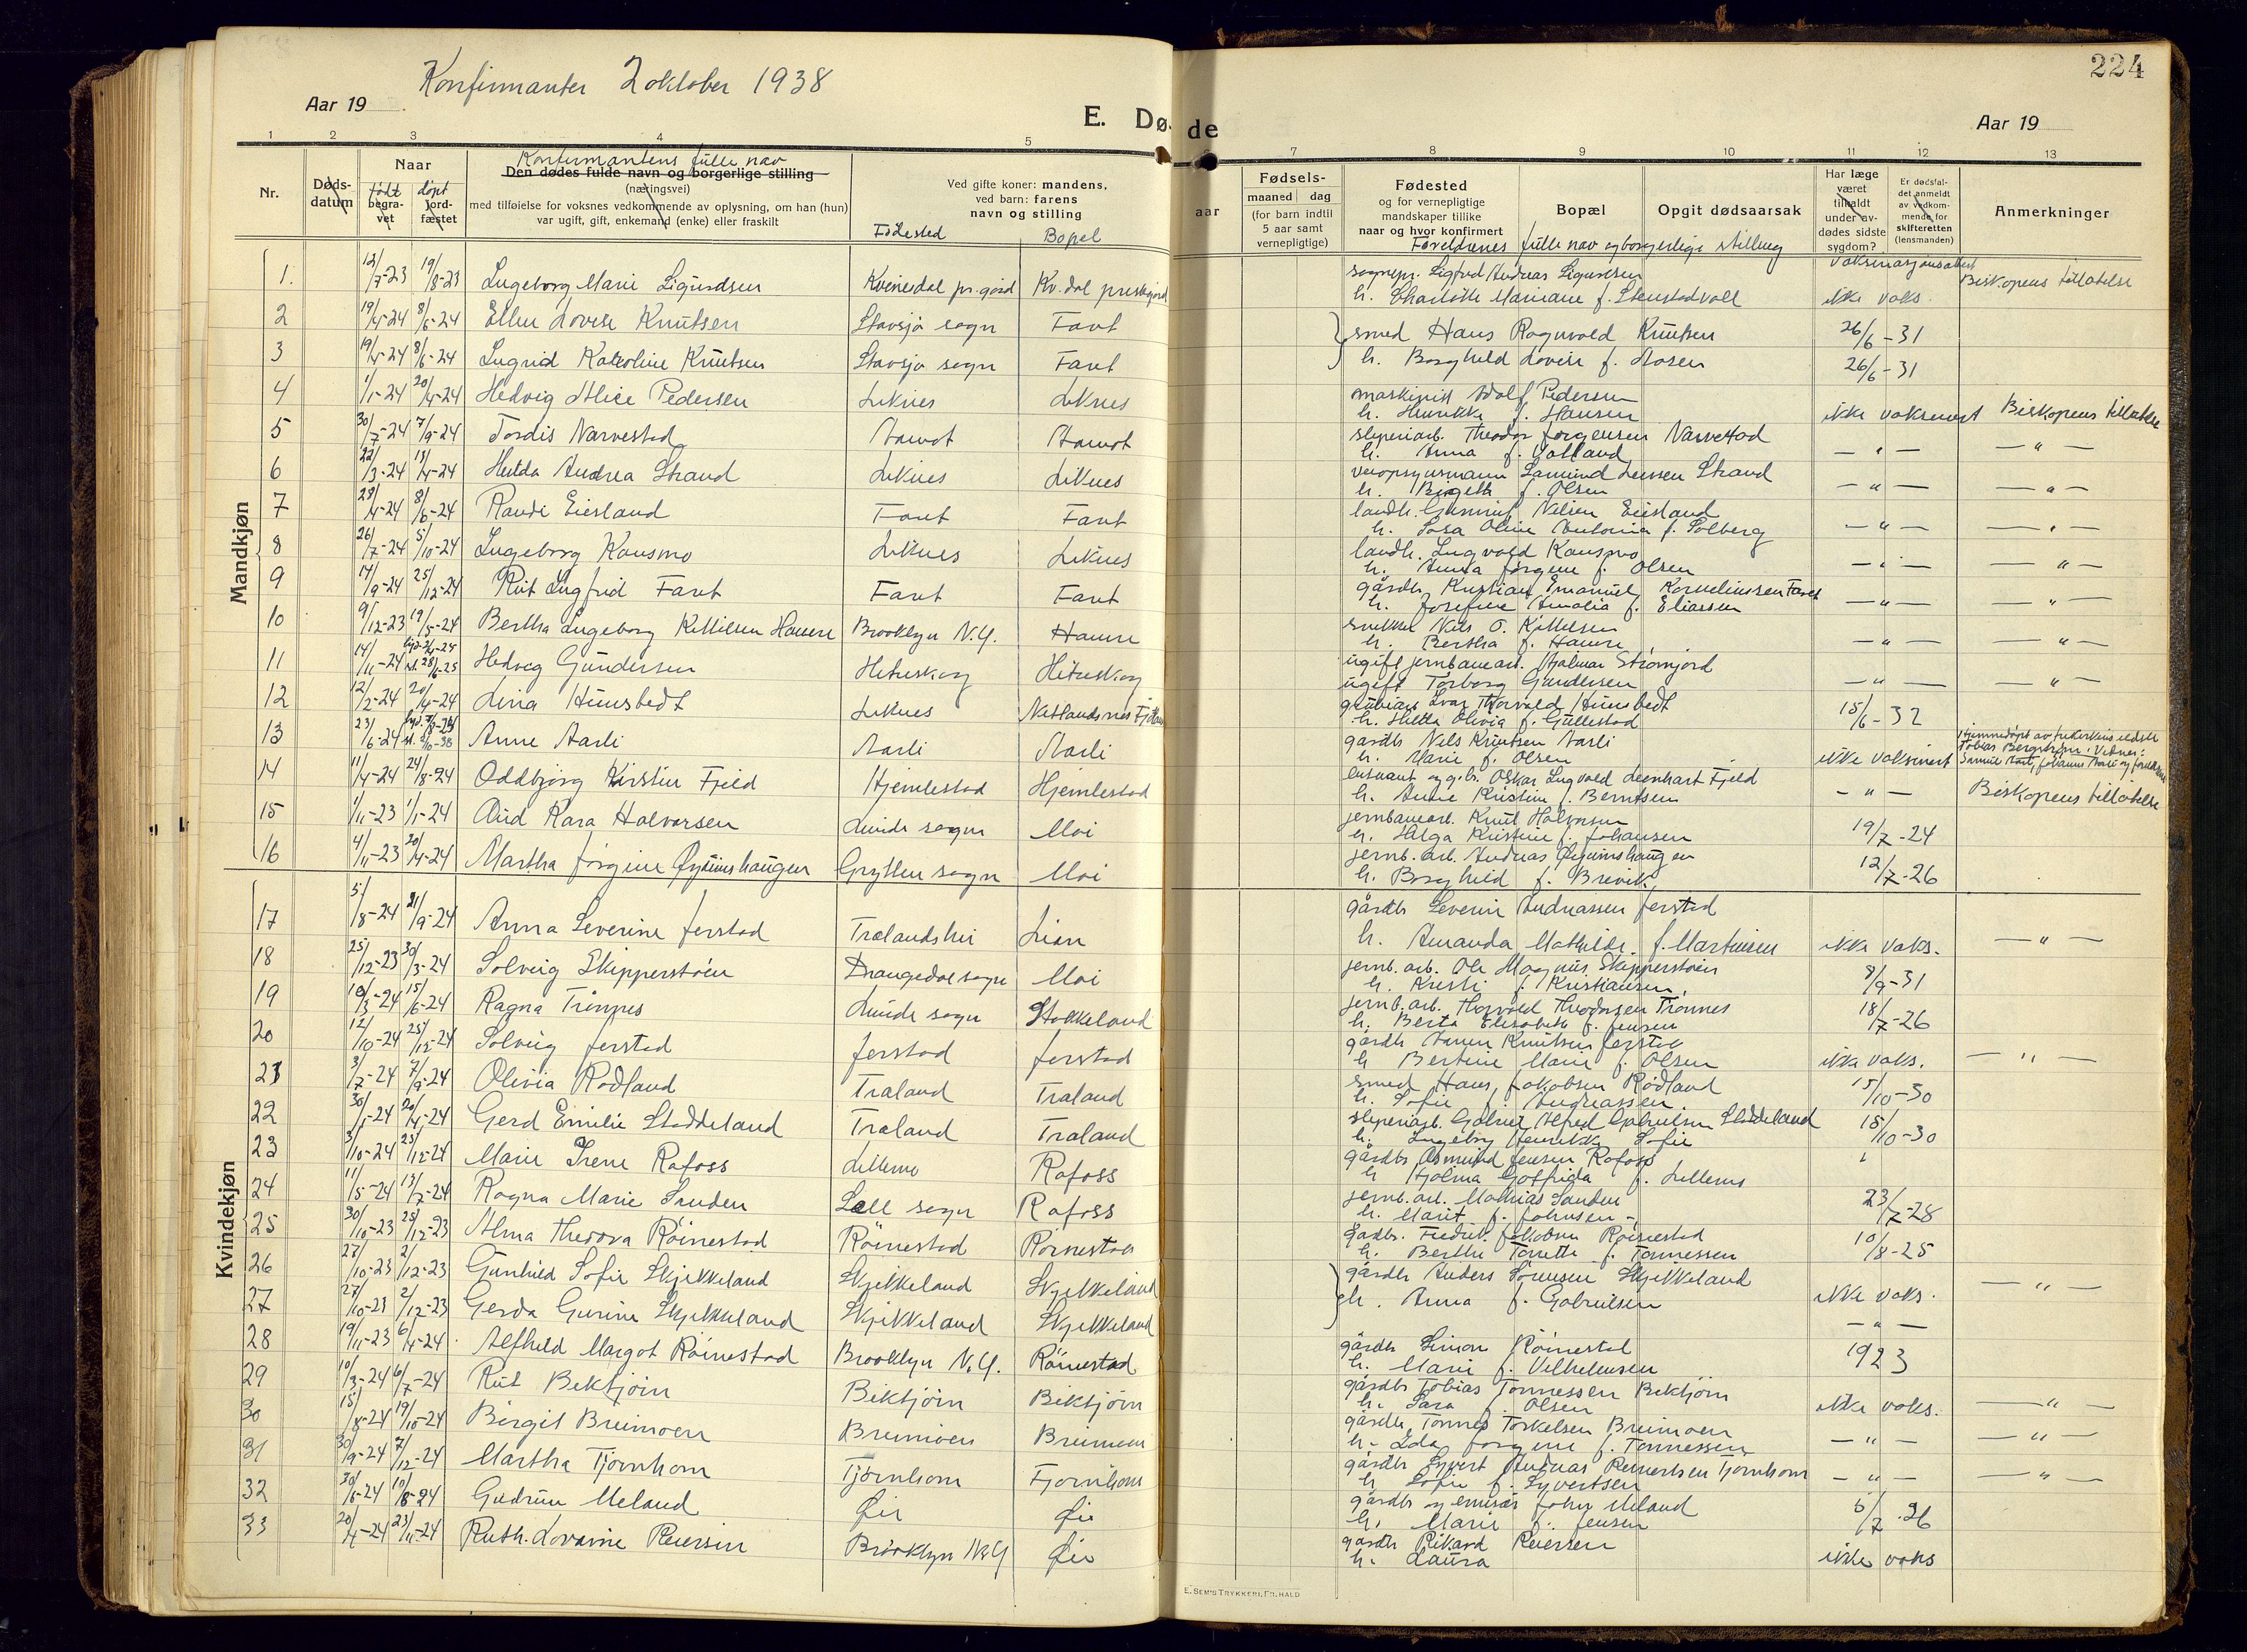 Konfirmanter 2 oktober 1938
Aar 19
E. Dø-
1 2 3 4 5
Nr.
Døds-
datum
Naar
født døpt
begra-
vet
jord-
fæstet
Konfirmantens fulle nav
Den dødes fulde navn og borgerlige stilling
(næringsvei)
med tilføielse for voksnes vedkommende av oplysning, om han (hun)
var ugift, gift, enkemand (enke) eller fraskilt
Ved gifte koner: mandens,
ved barn: farens
navn og stilling
Fødested Bopel
Mandkjøn
1. 12/7-23 19/8-23 Ingeborg Marie Sigurdsen Kvinesdal pr.gård Kv.dal prestegård
2 19/4-24 8/6-24 Ellen Lovise Knutsen Stavsjø sogn Faret
3 19/4-24 8/6-24 Ingrid Karoline Knutsen Stavsjø sogn Faret
4 1/1-24 20/4-24 Hedvig Alice Pedersen Liknes Liknes
5 30/7-24 7/9-24 Tordis Narvestad Aamot Aamot
6 22/3-24 13/4-24 Hulda Andrea Strand Liknes Liknes
7 28/4-24 8/6-24 Randi Eiesland Faret Faret
8 26/7-24 5/10-24 Ingeborg Kausmo Liknes Liknes
9 14/9-24 25/12-24 Rut Ingfrid Faret Faret Faret
10 9/12-23 19/5-24 Bertha Ingeborg Kittilsen Hamre Brooklyn N.Y. Hamre
11 14/11-24 Hedvig Gundersen Heiteskog Heiteskog
12 12/2-24 20/4-24 Lina Hunsbedt Liknes Netlandsnes
13 23/6-24 Anne Aarli Aarli Aarli
14 11/4-24 24/8-24 Oddbjørg Kirstin Fjeld Hjemlestad Hjemlestad
15 1/11-23 1/1-24 Aud Kara Halvorsen Lunde sogn Moi
16 4/11-23 20/4-24 Martha Jørgine Øygumshaugen Grytten sogn Moi
Kvindekjøn
17 5/8-24 21/9-24 Anna Severine Jerstad Trælandshei Lian
18 25/12-23 30/3-24 Solveig Skipperstøen Drangedal sogn Moi
19 10/3-24 15/6-24 Ragna Trønnes Lunde sogn Stokkeland
20 12/10-24 25/12-24 Solveig Jerstad Jerstad Jerstad
21 3/7-24 7/9-24 Olivia Rødland Træland Træland
22 30/1-24 20/4-24 Gerd Emilie Støddeland Træland Træland
23 3/10-24 25/12-24 Marie Irene Rafoss Lillemo Rafoss
24 11/5-24 13/7-24 Ragna Marie Sanden Sell sogn Rafoss
25 30/10-23 25/12-23 Alma Theodora Röinestad Röinestad Röinestad
26 27/10-23 2/12-23 Gunhild Sofie Skjekkeland Skjekkeland Skjekkeland
27 27/10-23 2/12-23 Gerda Gurine Skjekkeland Skjekkeland Skjekkeland
28 19/11-23 6/4-24 Alfhild Margot Röinestad Brooklyn N.Y. Röinestad
29 10/3-24 6/7-24 Rut Bektjørn Bektjørn Bektjørn
30 15/8-24 19/10-24 Birgit Breimoen Breimoen Breimoen
31 30/9-24 7/12-24 Martha Tjørnhom Tjørnhom Tjørnhom
32 30/6-24 10/8-24 Gudrun Meland Øie Øie
33 20/4-24 23/11-24 Ruth Lovaine Reiersen Brooklyn N.Y Øie
224
de
Aar 19
7 8 9 10 11 12 13
aar
Fødsels-
maaned dag
(for barn indtil
5 aar samt
vernepligtige)
Fødested
og for vernepligtige
mandskaper tillike
naar og hvor konfirmert
Bopæl
Opgit dødsaarsak
Foreldrenes fulle nav og borgerlige stilling
Har læge
været
tilkaldt
under av-
dødes sidste
sygdom?
Er dødsfal-
det anmeldt
av vedkom-
mende for
skifteretten
(lensmanden)
Anmerkninger
sognepr. Sigfred Andreas Sigurdsen Biskopens tillatelse
h. Charlotte Mariane f. Stenstadvold ikke vaks.
smed Hans Ragnvald Knutsen 26/6-31
h. Borghild Lovise f. Aasen 26/6-31
maskinist Adolf Pedersen
h. Henrikke f. Hansen ikke vaksinert Biskopens tillatelse
sliperiarb. Theodor Jørgensen Narvestad
h. Anna f. Valland — " — — " —
veiopsynsmann Samund Lenssen Strand
h. Birgith f. Olsen — " — — " —
landh. Gunnuf Nilsen Eiesland
h. Sara Oline Antonia f. Solberg — " — — " —
landh. Ingvald Kausmo
h. Anna Jørgine f. Olsen — " — — " —
gårdb. Kristian Emanuel Korneliussen Faret
h. Josefine Amalia f. Eliassen — " — — " —
snekker Nils O. Kittelsen
h. Bertha f. Hamre — " — — " —
ugift jernbanearb. Hjalmar Strømfjord
ugift Torborg Gundersen — " — — " —
Ivar Thorvald Hunsbedt
h. Hilda Olivia f. Gullestad 15/6-32
gardb Nils Knutsen Aarli
h. Marie f. Olsen ikke vaksinert
Hjemmedøpt av frikirkens eldste
Tobias Bergstrøm. Vidner:
Samuel Aarli, Johannes Aarli og foreldrene
løitnant og g.br. Oskar Ingvald Leonhart Fjeld
h. Anne Kristine f. Berntsen — " — Biskopens tillatelse
jernbanearb. Knut Halvorsen
h. Helga Kristine f. Johansen 19/7-24
jernb. arb. Andreas Øygumshaugen
h. Borghild f. Brevik 12/7-26
gårdb Severin Andreassen Jerstad
h. Amanda Mathilde f. Martinsen ikke vaks. — " —
jernb. arb. Ole Magnus Skipperstøen
h. Kristi f. Kristiansen 8/9-31
jernb. arb. Thorvald Theodorsen Trønnes
h. Berta Elisabeth f. Jensen 18/7-26
gårdb Aanen Knutsen Jerstad
h Bertine Marie f. Olsen ikke vaks. — " —
smed Hans Jakobsen Rødland
h. Sofie f. Andreassen 15/10-30
sliperiarb. Gabriel Alfred Gabrielsen Støddeland
h. Ingeborg Henrikke Sofie 15/10-30
gårdb. Åsmund Jensen Rafoss
h Hjalma Gotfrida f. Lillemo
jernb. arb. Mathias Sanden
h. Marit f. Johnsen 23/7-28
gårdb. Fredrik Jakobsen Röinestad
h. Berthe Tonette f. Tønnessen 10/8-25
gårdb Anders Sørensen Skjekkeland
h. Anna f. Gabrielsen ikke vaks. — " —
— " —
gårdb Simon Röinestad
h. Marie f. Vilhelmsen 1923
gårdb Tobias Tønnessen Bektjørn
h. Sara f. Olsen ikke vaks. — " —
gårdb. Tønnes Torkelsen Breimoen
h. Ida Jørgine f. Tønnessen — " — — " —
gårdb Syvert Andreas Reinertsen Tjørnhom
h Sofie f. Syvertsen — " — — " —
gårdb og emisær John Meland
h. Marie f. Jensen 5/7-26
gårdb Rikard Reiersen
h. Laura ikke vaks
E. SEM'S TRYKKERI, FR.HALD